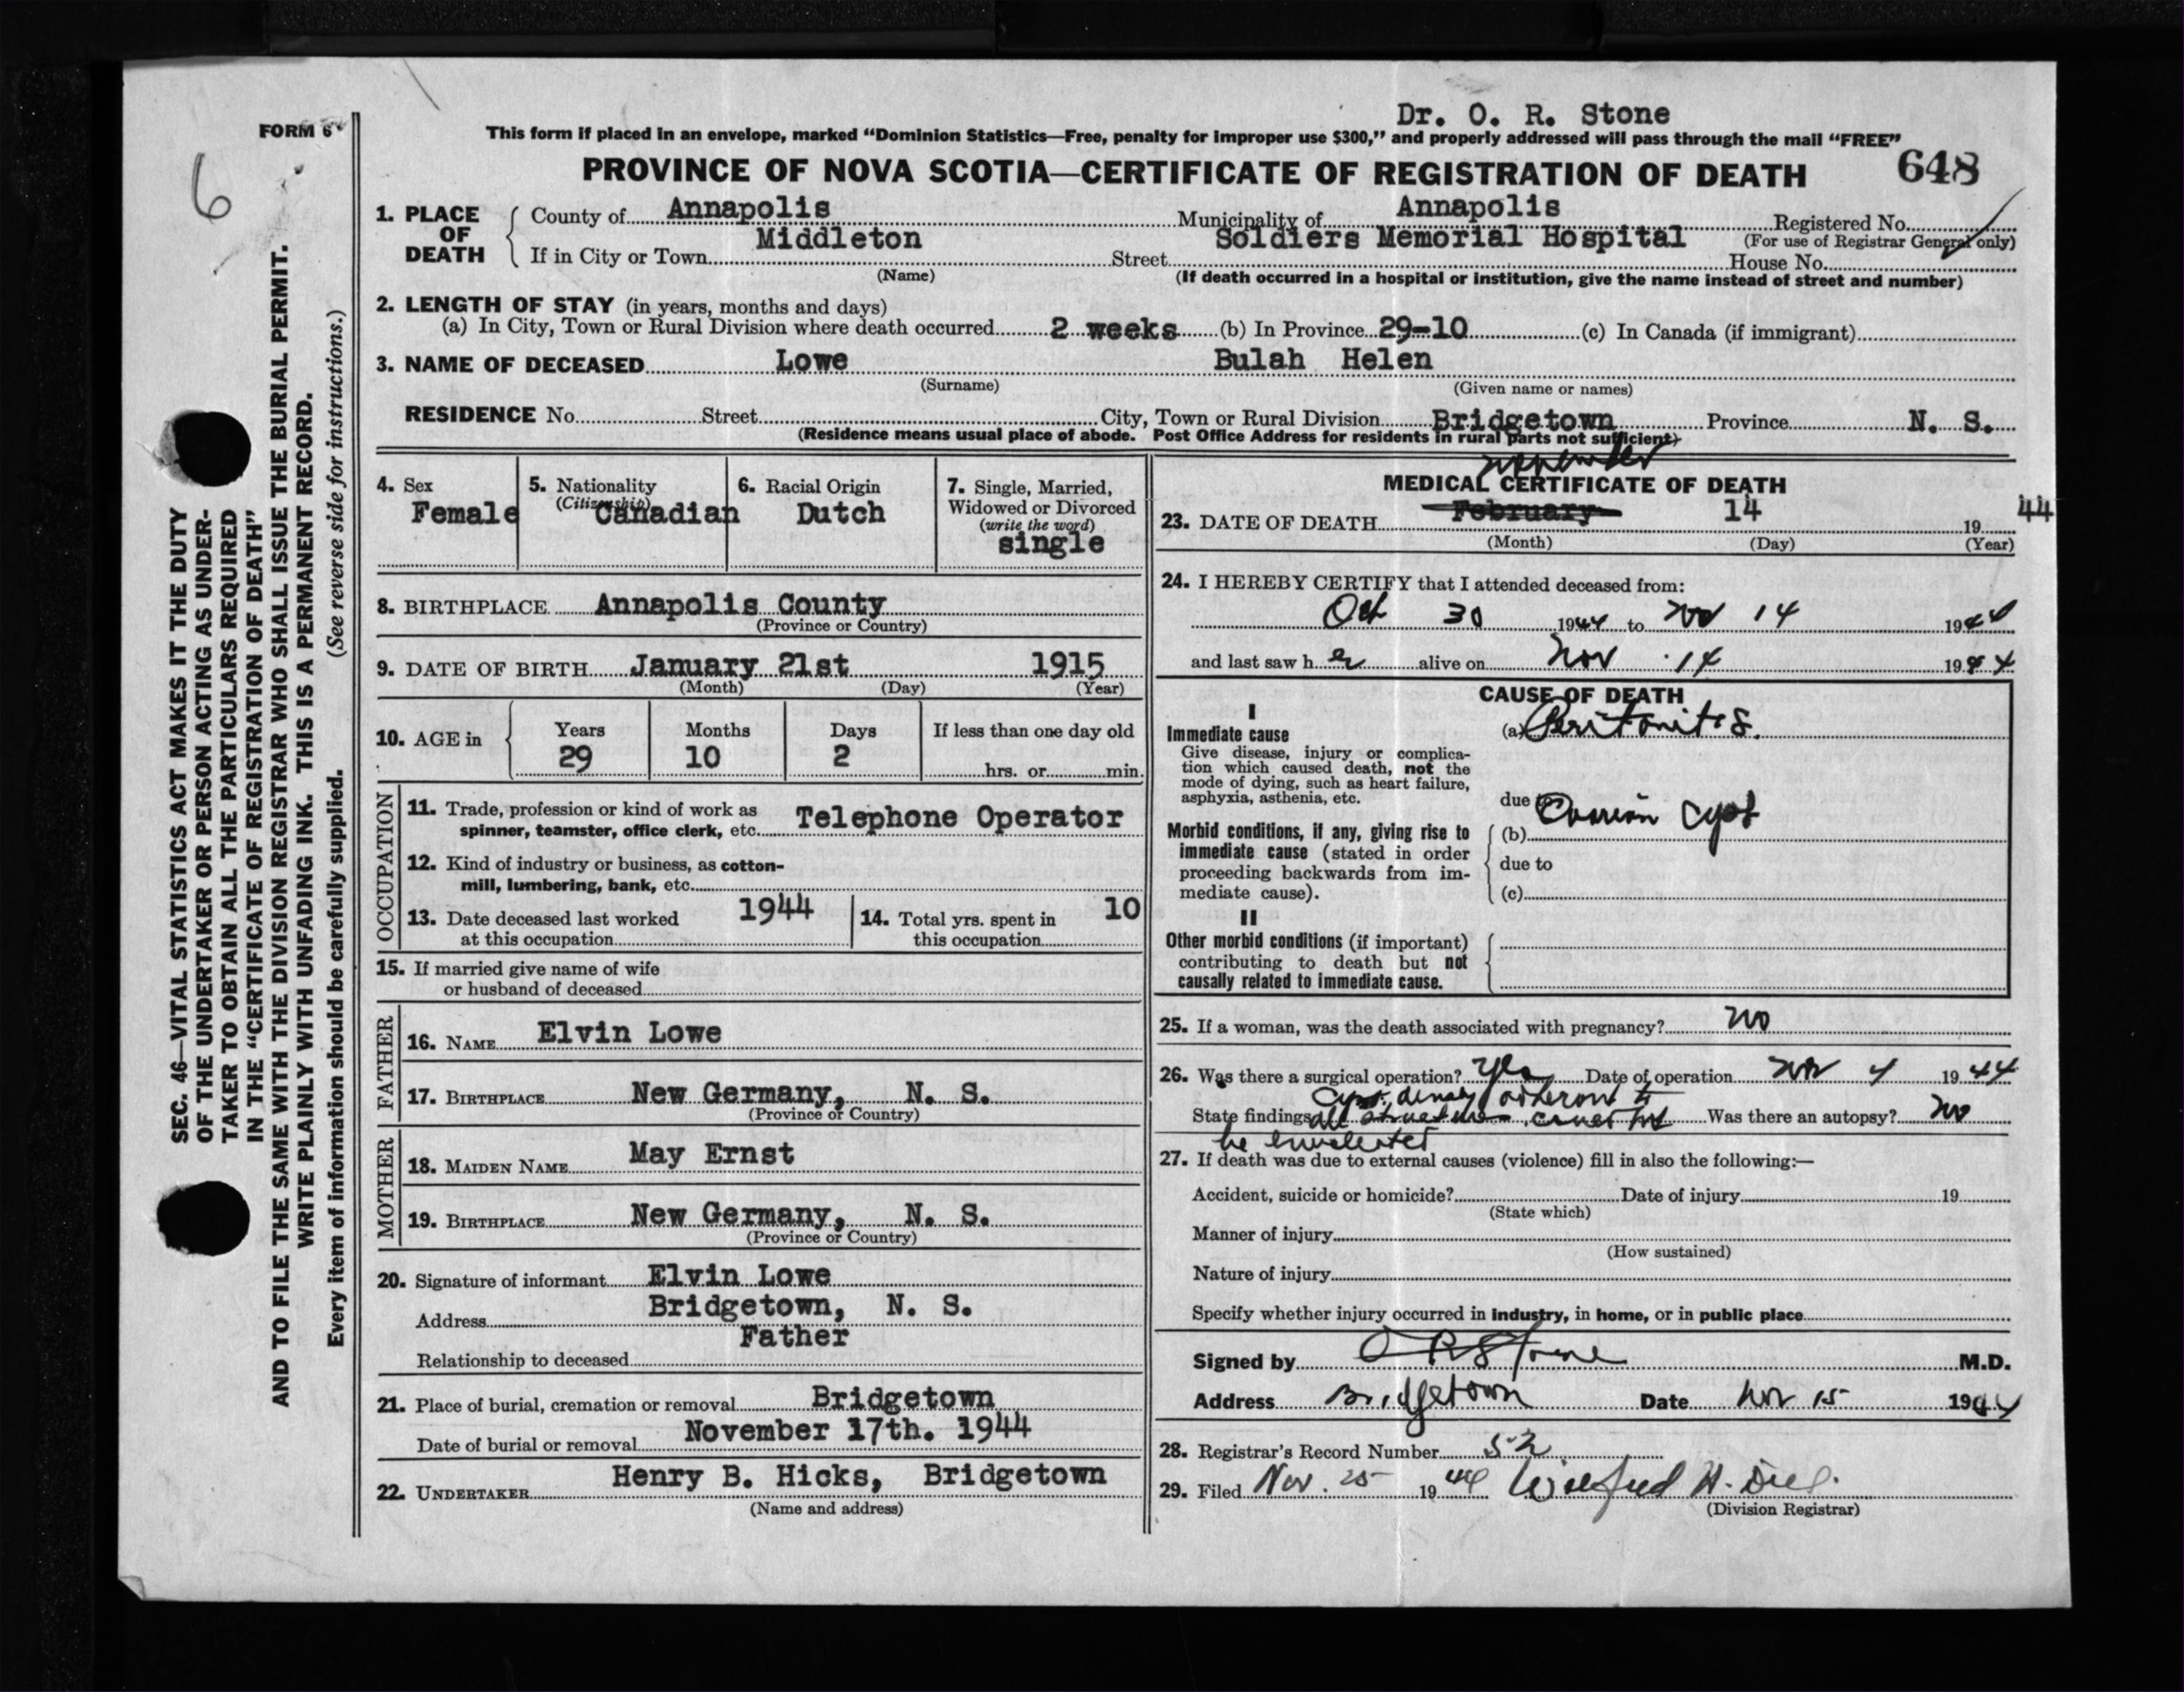 Dr. O. R. Stone
FORM 6
This form if placed in an envelope, marked “Dominion Statistics—Free, penalty for improper use $300,” and properly addressed will pass through the mail “FREE”
PROVINCE OF NOVA SCOTIA—CERTIFICATE OF REGISTRATION OF DEATH 648
6
SEC. 46—VITAL STATISTICS ACT MAKES IT THE DUTY
OF THE UNDERTAKER OR PERSON ACTING AS UNDER-
TAKER TO OBTAIN ALL THE PARTICULARS REQUIRED
IN THE “CERTIFICATE OF REGISTRATION OF DEATH”
AND TO FILE THE SAME WITH THE DIVISION REGISTRAR WHO SHALL ISSUE THE BURIAL PERMIT.
WRITE PLAINLY WITH UNFADING INK. THIS IS A PERMANENT RECORD.
Every item of information should be carefully supplied. (See reverse side for instructions.)
1. PLACE OF DEATH
County of Annapolis Municipality of Annapolis Registered No.
(For use of Registrar General only)
If in City or Town Middleton Street Soldiers Memorial Hospital House No.
(Name) (If death occurred in a hospital or institution, give the name instead of street and number)
2. LENGTH OF STAY (in years, months and days)
(a) In City, Town or Rural Division where death occurred 2 weeks (b) In Province 29-10 (c) In Canada (if immigrant)
3. NAME OF DECEASED Lowe Bulah Helen
(Surname) (Given name or names)
RESIDENCE No. Street City, Town or Rural Division Bridgetown Province N. S.
(Residence means usual place of abode. Post Office Address for residents in rural parts not sufficient)
4. Sex
Female
5. Nationality
(Citizenship)
Canadian
6. Racial Origin
Dutch
7. Single, Married,
Widowed or Divorced
(write the word)
single
8. BIRTHPLACE Annapolis County
(Province or Country)
9. DATE OF BIRTH January 21st 1915
(Month) (Day) (Year)
10. AGE in
Years Months Days If less than one day old
29 10 2 hrs. or min.
OCCUPATION
11. Trade, profession or kind of work as
spinner, teamster, office clerk, etc. Telephone Operator
12. Kind of industry or business, as cotton-
mill, lumbering, bank, etc.
13. Date deceased last worked
at this occupation 1944
14. Total yrs. spent in
this occupation 10
15. If married give name of wife
or husband of deceased
FATHER
16. NAME Elvin Lowe
17. BIRTHPLACE New Germany, N. S.
(Province or Country)
MOTHER
18. MAIDEN NAME May Ernst
19. BIRTHPLACE New Germany, N. S.
(Province or Country)
20. Signature of informant Elvin Lowe
Address Bridgetown, N. S.
Relationship to deceased Father
21. Place of burial, cremation or removal Bridgetown
Date of burial or removal November 17th. 1944
22. UNDERTAKER Henry B. Hicks, Bridgetown
(Name and address)
MEDICAL CERTIFICATE OF DEATH
November
23. DATE OF DEATH February 14 19 44
(Month) (Day) (Year)
24. I HEREBY CERTIFY that I attended deceased from:
Oct 30 1944 to Nov 14 1944
and last saw h er alive on Nov 14 1944
CAUSE OF DEATH
I
Immediate cause
Give disease, injury or complica-
tion which caused death, not the
mode of dying, such as heart failure,
asphyxia, asthenia, etc.
(a) Peritonitis.
due to
Morbid conditions, if any, giving rise to
immediate cause (stated in order
proceeding backwards from im-
mediate cause).
(b) Ovarian Cyst
due to
(c)
II
Other morbid conditions (if important)
contributing to death but not
causally related to immediate cause.
25. If a woman, was the death associated with pregnancy? No
26. Was there a surgical operation? Yes Date of operation Nov 4 1944
State findings Cyst densly adherent to
all structures Was there an autopsy? No
be
27. If death was due to external causes (violence) fill in also the following:—
Accident, suicide or homicide? Date of injury 19
(State which)
Manner of injury
(How sustained)
Nature of injury
Specify whether injury occurred in industry, in home, or in public place
Signed by O R Stone M.D.
Address Bridgetown Date Nov 15 1944
28. Registrar's Record Number 52
29. Filed Nov. 25 1944 Wilfred H.
(Division Registrar)